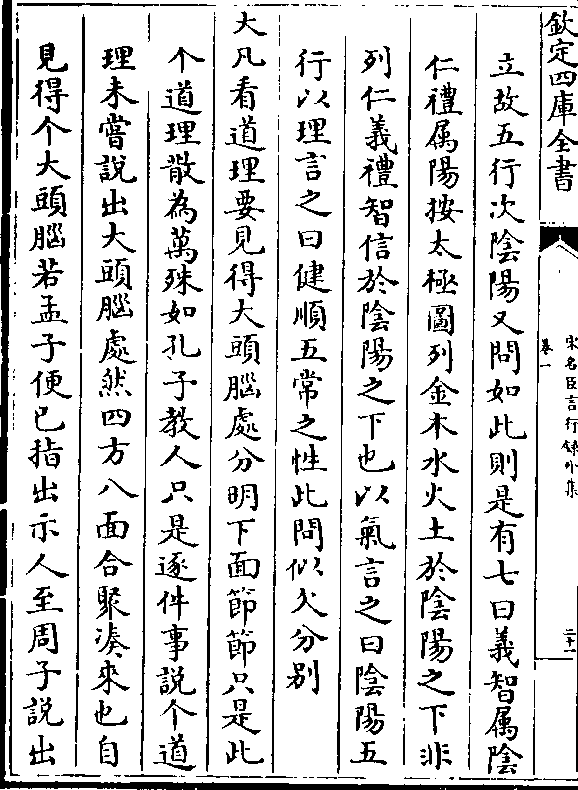 欽定四庫全書
宋名臣言行錄外集
卷一
二十一
立故五行次隂陽又問如此則是有七曰義智属隂
仁禮属陽按太極圖列金木水火土於隂陽之下非
列仁義禮智信於隂陽之下也以氣言之曰隂陽五
行以理言之曰健順五常之性此問似欠分别
大凡看道理要見得大頭腦處分明下面節節只是此
个道理散為萬殊如孔子教人只是逐件事說个道
理未嘗說出大頭腦處然四方八面合聚凑來也自
見得个大頭腦若孟子便已指出示人至周子說出